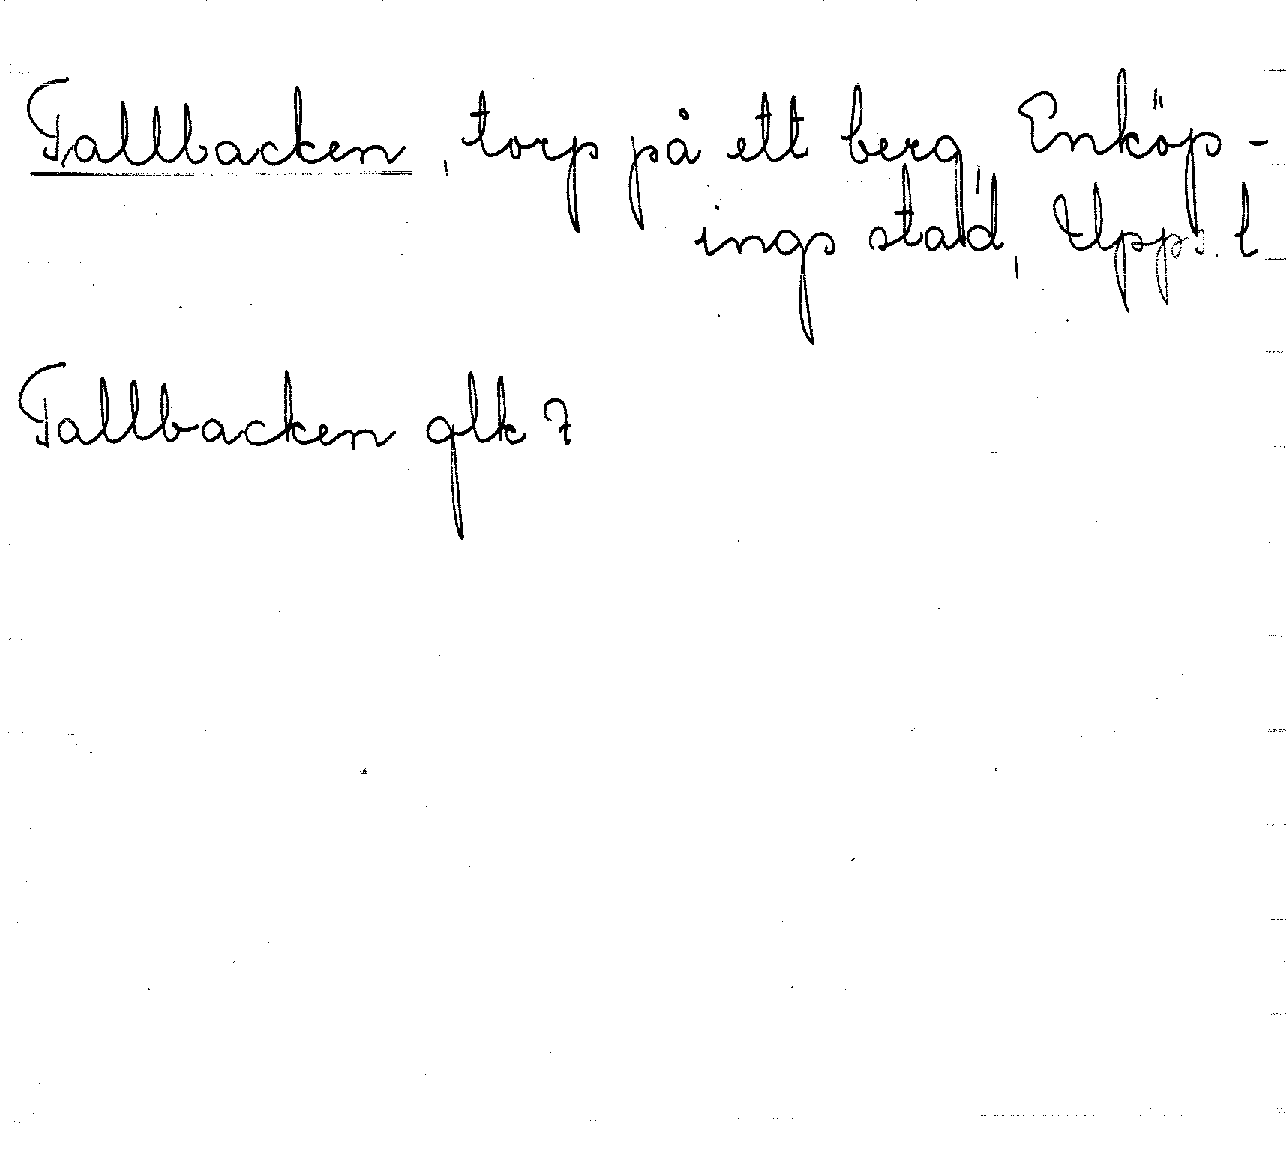 Tallbacken, torp på ett berg, Enköp-
ings stad, Upps. l
Tallbacken glk 7